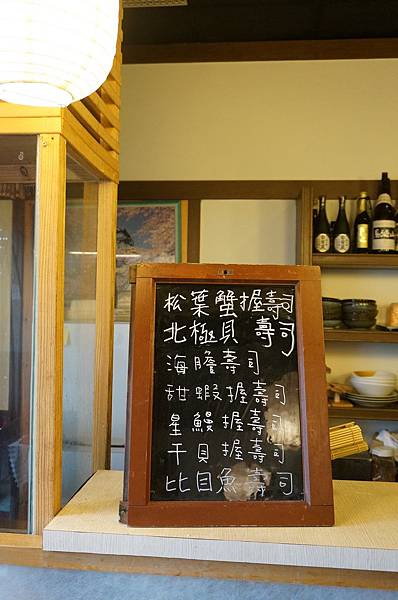 松葉蟹握壽司
北極貝 壽司
海膽壽司
甜蝦握壽司
星鰻握壽司
干貝握壽司
比目魚壽司